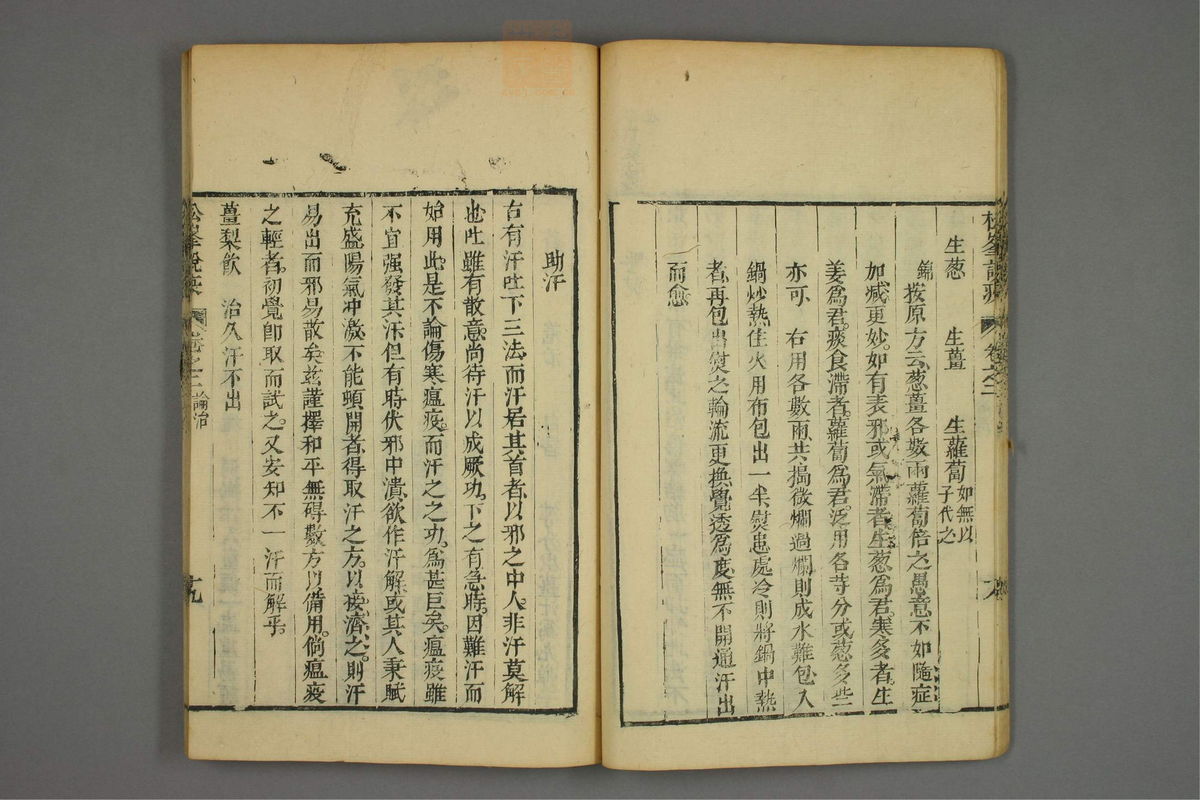 松峯說疫 卷之二
生葱 生薑 生蘿蔔 如無以子代之
錦按原方云葱薑各數兩蘿蔔倍之愚意不如隨症
加减更妙如有表邪或氣滯者生葱爲君寒多者生
姜爲君痰食滯者蘿蔔爲君泛用各等分或葱多些
亦可 右用各數兩共搗微爛過爛則成水難包入
鍋炒熱住火用布包出一半熨患處冷則將鍋中熱
者再包出熨之輪流更換覺透爲度無不開通汗出
而愈
助汗
右有汗吐下三法而汗居其首者以邪之中人非汗莫解
也吐雖有散意尚待汗以成厥功下之有急時因難汗而
始用此是不論傷寒瘟疫而汗之之功爲甚巨矣瘟疫雖
不宜强發其汗但有時伏邪中潰欲作汗解或其人秉賦
充盛陽氣冲激不能頓開者得取汗之方以接濟之則汗
易出而邪易散矣兹謹擇和平無碍數方以備用倘瘟疫
之輕者初覺卽取而試之又安知不一汗而解乎
薑梨飲 治久汗不出
松峯說疫 卷之二 論治 十九